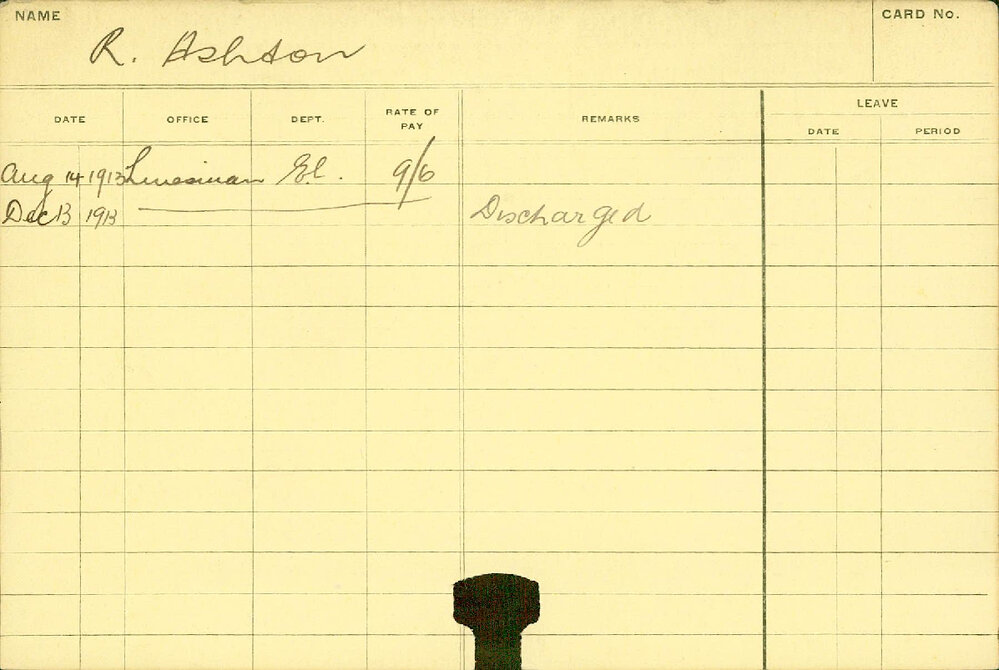 NAME
CARD No.
R. Ashton
DATE OFFICE DEPT. RATE OF PAY REMARKS LEAVE
DATE PERIOD
Aug 14 1913 Linesman El. 9/6
Dec 13 1913 Discharged